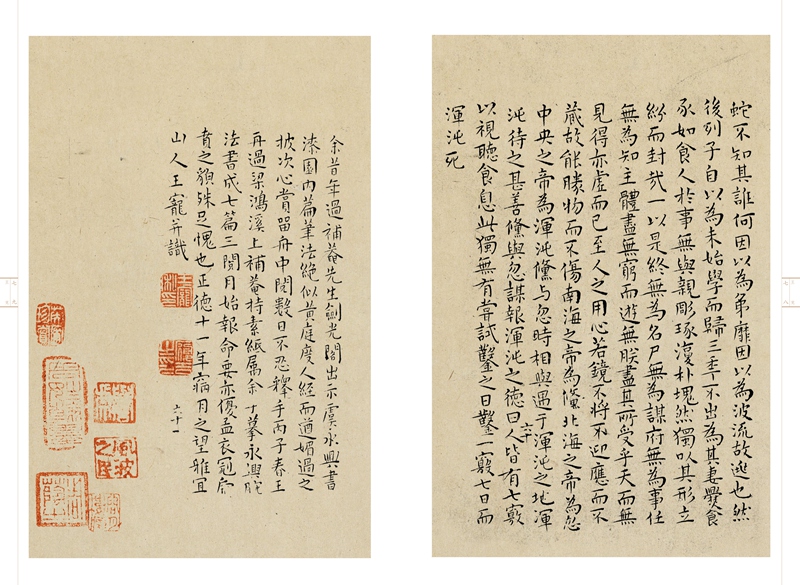 蛇不知其誰何因以為弟靡因以為波流故逃也然
後列子自以為未始學而歸三年不出為其妻爨食
豕如食人於事無與親彫琢復朴塊然獨以其形立
紛而封哉一以是終無為名尸無為謀府無為事任
無為知主體盡無窮而遊無朕盡其所受乎天而無
見得亦虛而已至人之用心若鏡不將不迎應而不
藏故能勝物而不傷南海之帝為儵北海之帝為忽
中央之帝為渾沌儵与忽時相與遇于渾沌之地渾
沌待之甚善儵與忽謀報渾沌之德曰人皆有七竅
以視聽食息此獨無有嘗試鑿之日鑿一竅七日而
渾沌死
六十
余昔年過補菴先生劍光閣出示虞永興書
漆園內篇筆法絕似黃庭度人經而遒媚過之
披次心賞留舟中閱數日不忍釋手丙子春王
再過梁鴻溪上補菴持素紙屬余丁摹永興
法書成七篇三閱月始報命要亦優孟衣冠
之殊足愧也正德十一年病月之望雅宜
山人王寵并識
六十一